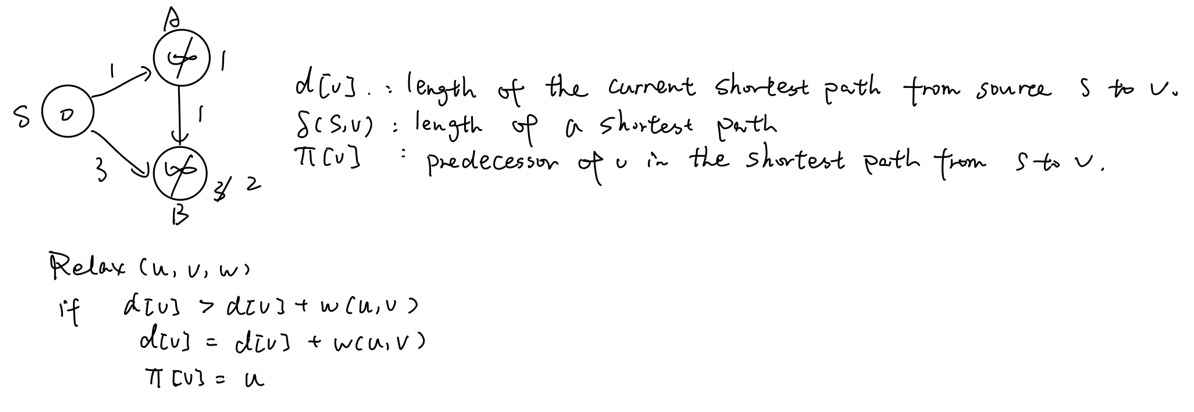 A
1
∞ 1
S 0
1
3
∞ 3 2
B
d[v] : length of the current shortest path from source S to v.
δ(S,v) : length of a shortest path
π[v] : predecessor of v in the shortest path from S to v.
Relax (u, v, w)
if d[v] > d[v] + w(u,v)
d[v] = d[v] + w(u,v)
π[v] = u